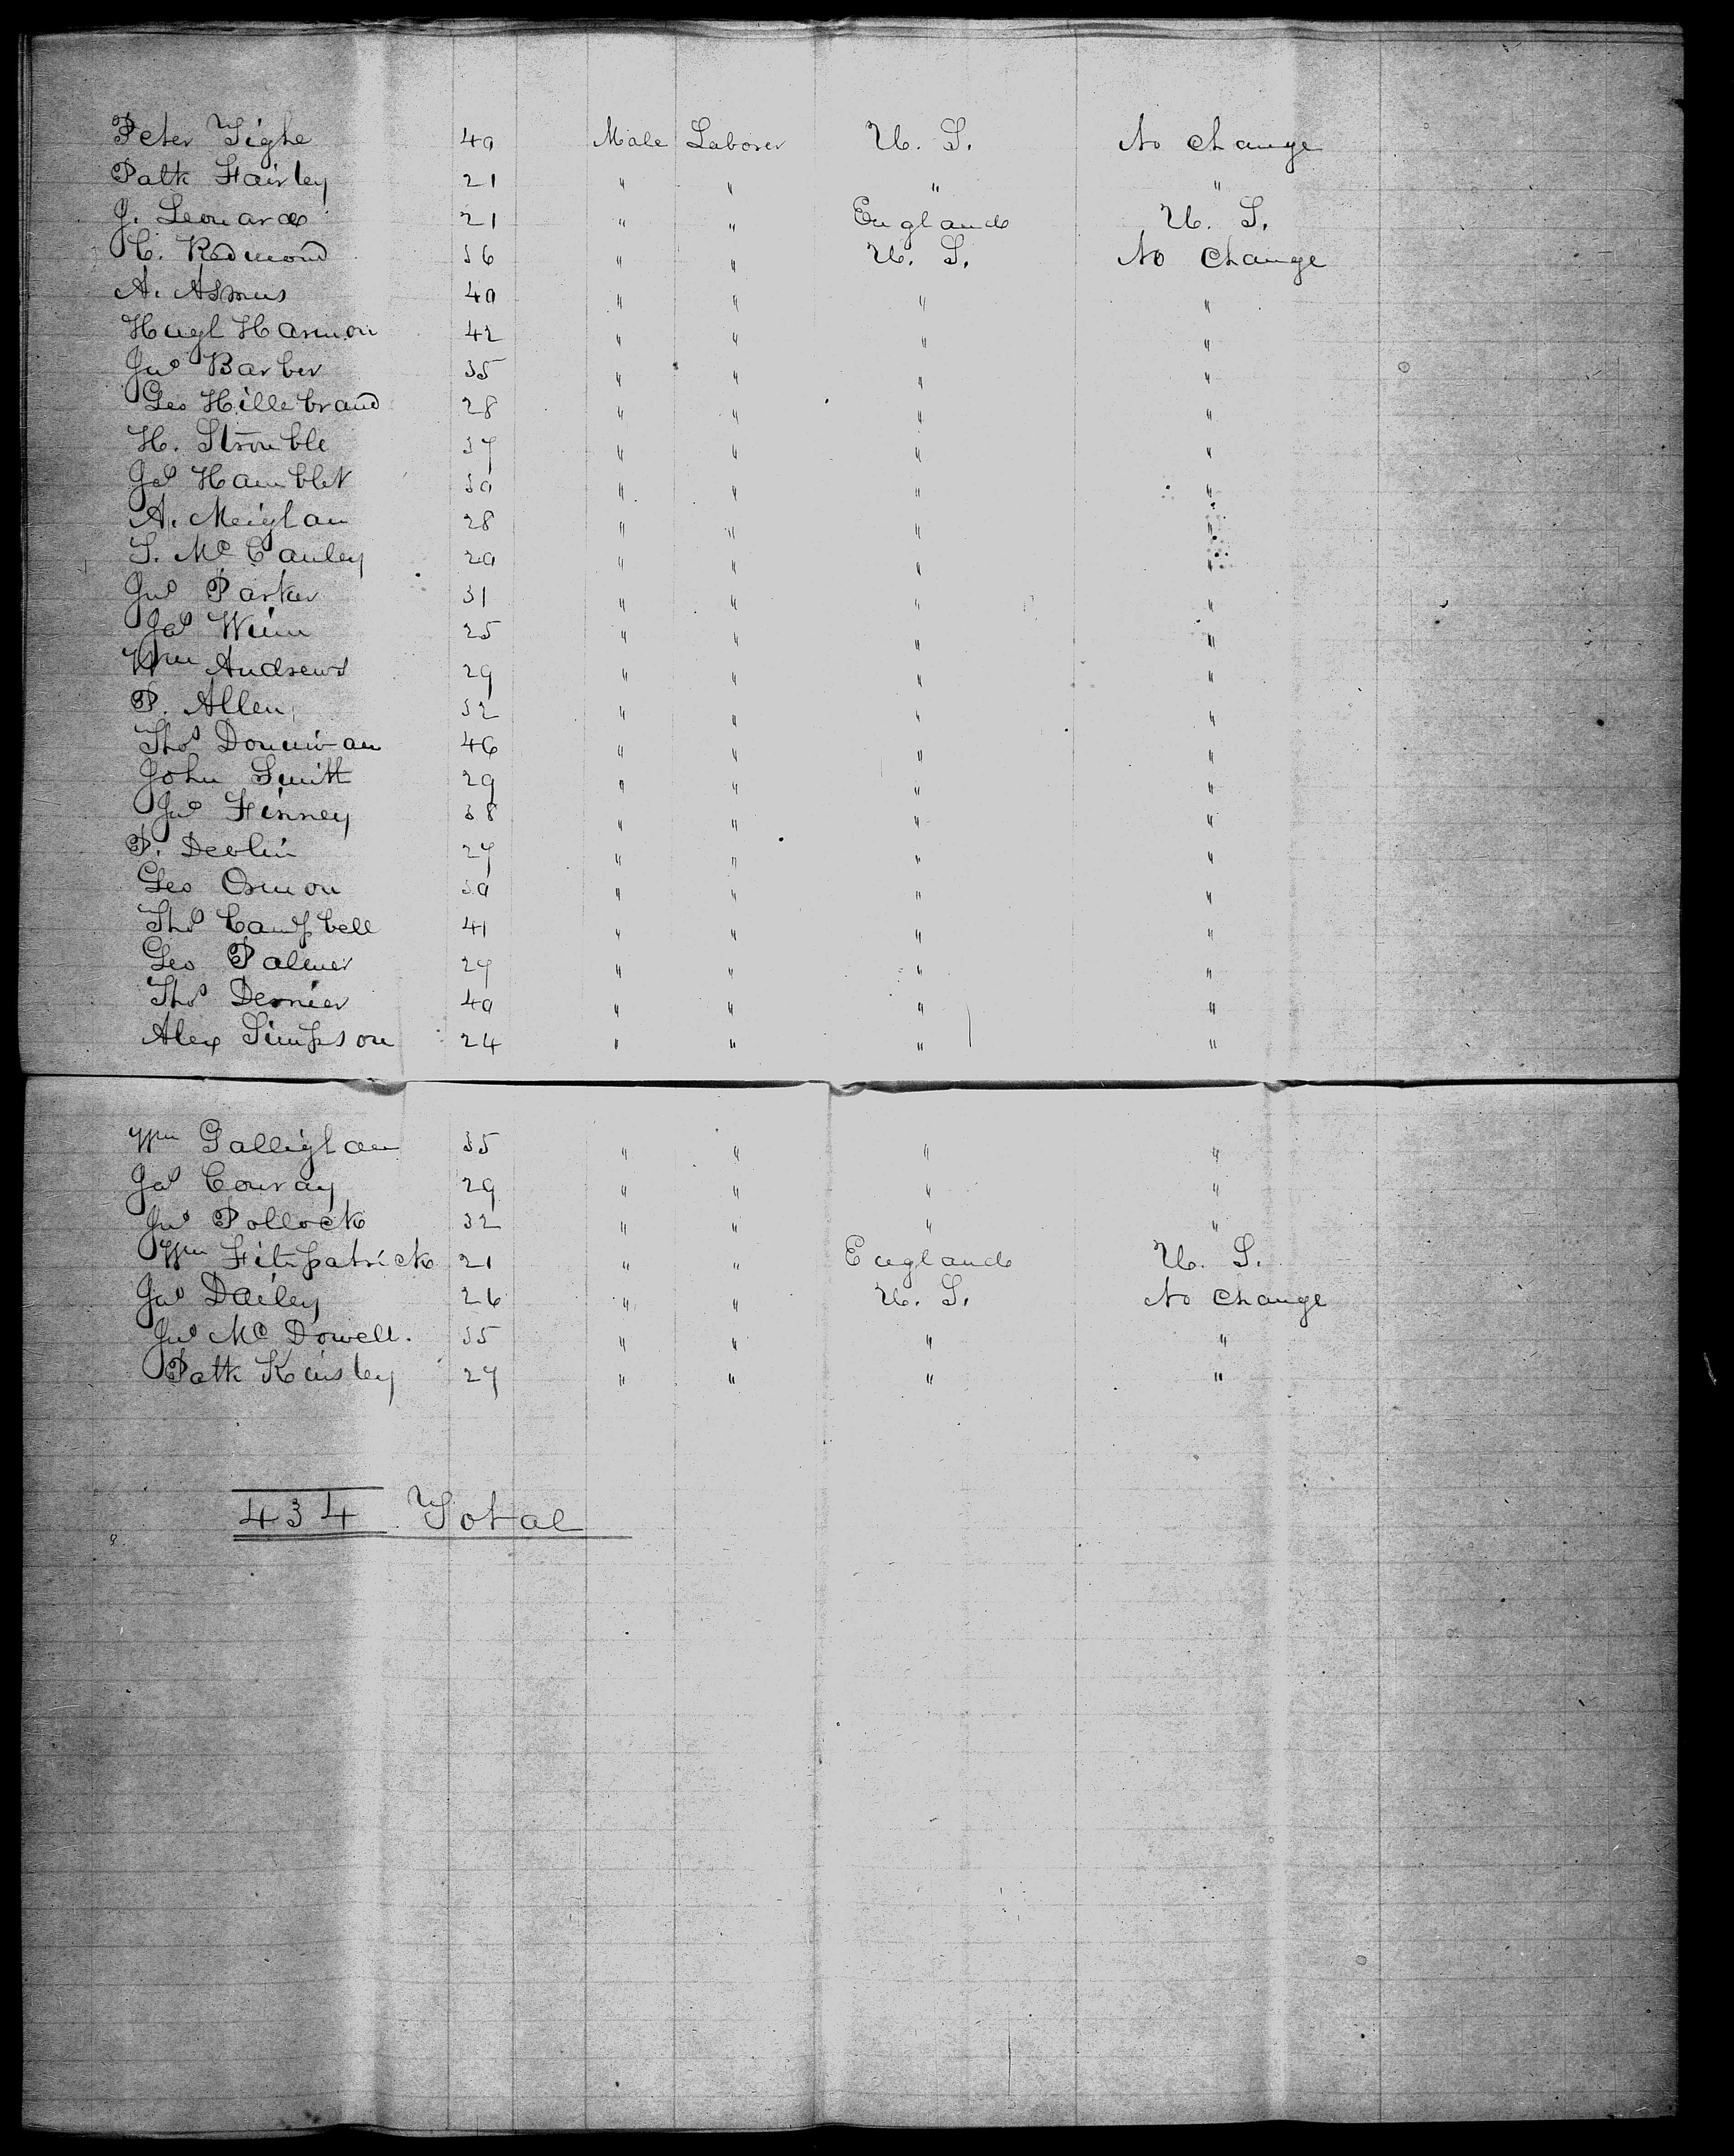 Peter Tighe 40 Male Laborer U. S. No Change
Patk Fairley 21 " " " "
J. Leonard 21 " " England U. S.
C. Redmond 36 " " U. S. No Change
A. Asmus 40 " " " "
Hugh Harmon 42 " " " "
Jno Barber 35 " " " "
Geo Hillebrand 28 " " " "
H. Strouble 37 " " " "
Jas Hamblet 30 " " " "
A. Meighan 28 " " " "
S. McCauley 20 " " " "
Jno Parker 31 " " " "
Jas Winn 25 " " " "
Wm Andrews 29 " " " "
P. Allen 32 " " " "
Thos Donnivan 46 " " " "
John Smith 29 " " " "
Jno Finney 38 " " " "
P. Devlin 27 " " " "
Geo Osmon 30 " " " "
Thos Campbell 41 " " " "
Geo Palmer 27 " " " "
Thos Dernier 40 " " " "
Alex Simpson 24 " " " "
Wm Gallighan 35 " " " "
Jas Conray 29 " " " "
Jno Pollock 32 " " " "
Wm Fitzpatrick 21 " " England U. S.
Jas Dailey 26 " " U. S. No Change
Jno McDowell. 35 " " " "
Patk Kinsley 27 " " " "
434 Total